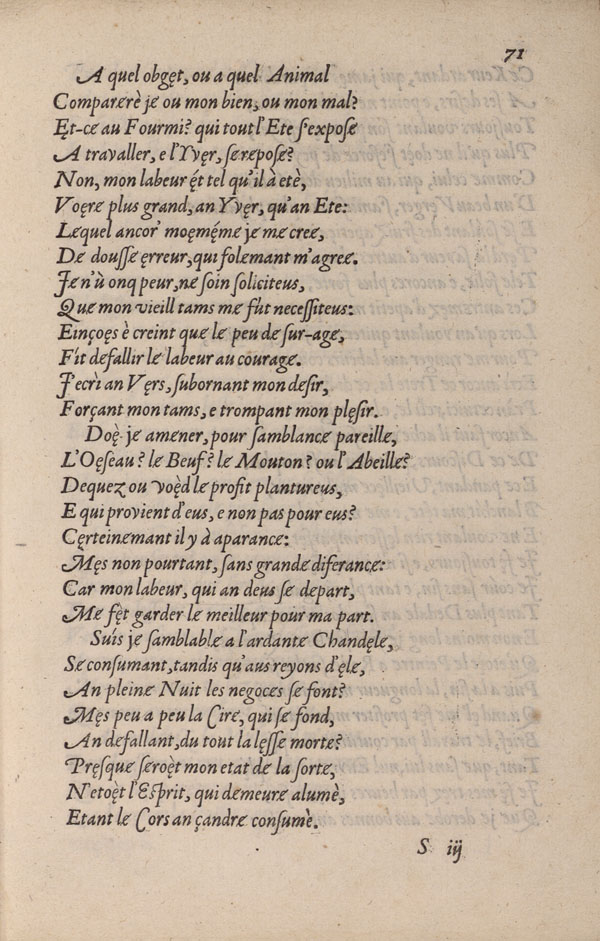 71
A quel obgęt, ou a quel Animal
Comparerè je ou mon bien, ou mon mal?
Ęt-ce au Fourmi? qui tout l'Ete s'expose
A travaller, e l'Yvęr, se repose?
Non, mon labeur ę́t tel qu'il à etè,
Voęre plus grand, an Yvęr, qu'an Ete:
Lequel ancor' moęmę́me je me cree,
De dousse ęrreur, qui folemant m'agree.
Je n'ù onq peur, ne soin soliciteus,
Que mon vieill tams me fút necessiteus:
Einçoęs è creint que le peu de sur-age,
Fít defallir le labeur au courage.
J'ecrì an Vęrs, subornant mon desir,
Forçant mon tams, e trompant mon plęsir.
Doę̀ je amener, pour samblance pareille,
L'Oęseau? le Beuf? le Mouton? ou l'Abeille?
Dequez ou voę̀d le profit plantureus,
E qui provient d'eus, e non pas pour eus?
Cęrteinemant il y à aparance:
Męs non pourtant, sans grande diferance:
Car mon labeur, qui an deus se depart,
Me fę̀t garder le meilleur pour ma part.
Suís je samblable a l'ardante Chandęle,
Se consumant, tandis qu'aus reyons d'ęle,
An pleine Nuit les negoces se font?
Męs peu a peu la Cire, qui se fond,
An defallant, du tout la lęsse morte?
Pręsque seroę̀t mon etat de la sorte,
N'etoę̀t l'Esprit, qui demeure alumè,
Etant le Cors an çandre consumè.
S iij